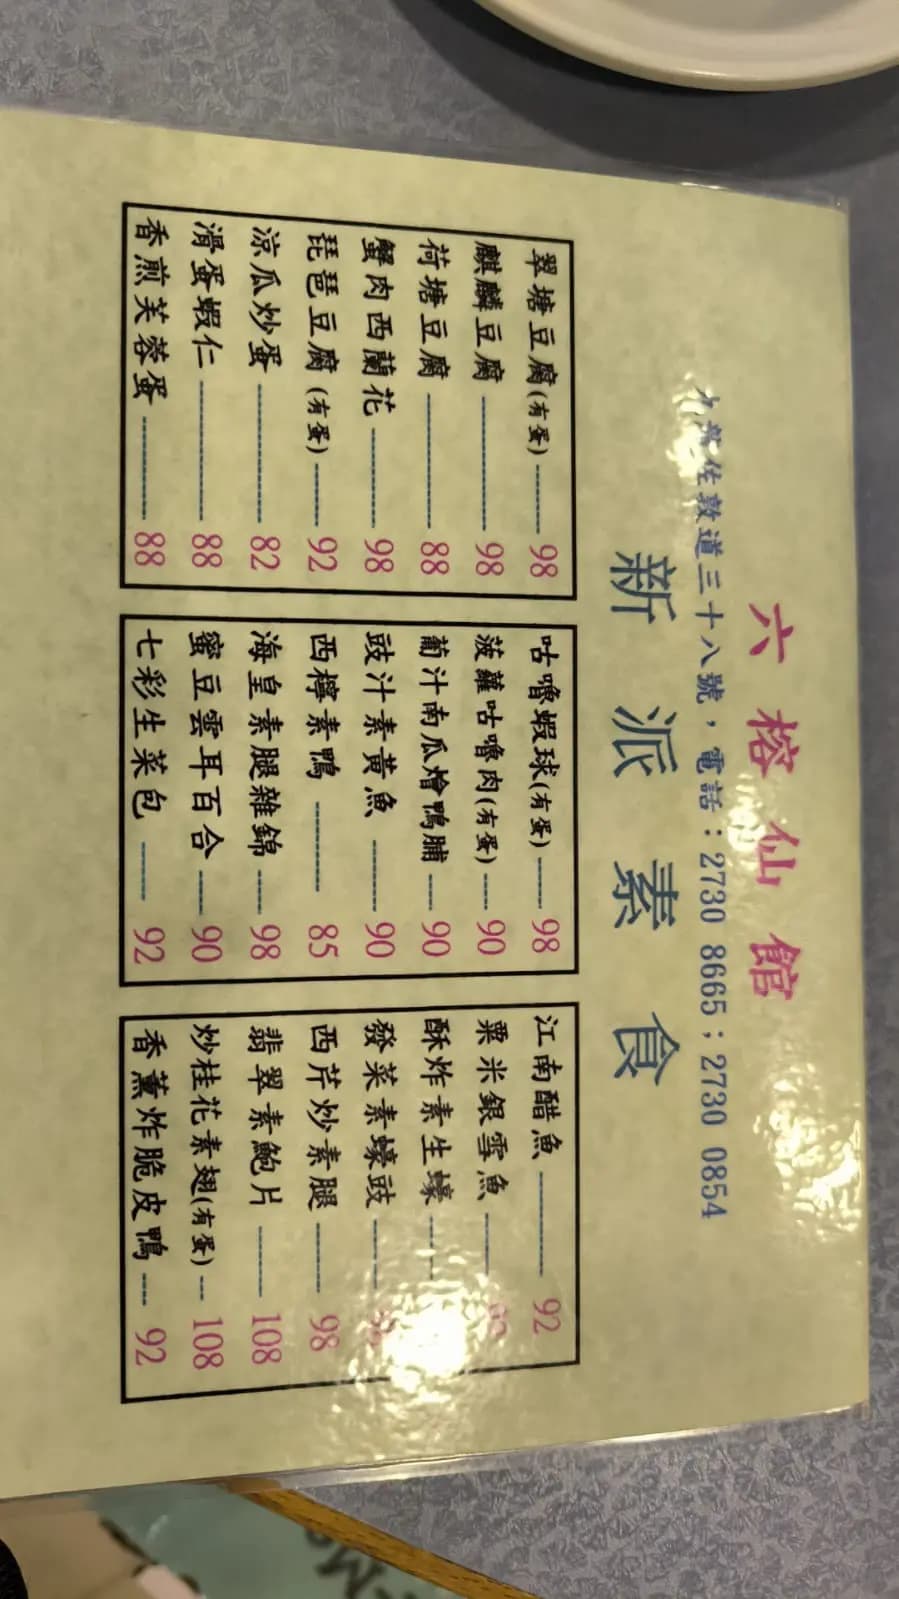 六榕仙館
佐敦道三十八號，電話：2730 8665；2730 0854
新派素食
翠塘豆腐(有蛋) 98
麒麟豆腐 98
荷塘豆腐 88
蟹肉西蘭花 98
琵琶豆腐(有蛋) 92
涼瓜炒蛋 82
滑蛋蝦仁 88
香煎芙蓉蛋 88
咕嚕蝦球(有蛋) 98
菠蘿咕嚕肉(有蛋) 90
葡汁南瓜燴鴨脯 90
豉汁素黃魚 90
西檸素鴨 85
海皇素腿雜錦 98
蜜豆雲耳百合 90
七彩生菜包 92
江南醋魚 92
粟米銀雪魚
酥炸素生蠔
發菜素蠔豉
西芹炒素腿 98
翡翠素鮑片 108
炒桂花素翅(有蛋) 108
香薰炸脆皮鴨 92